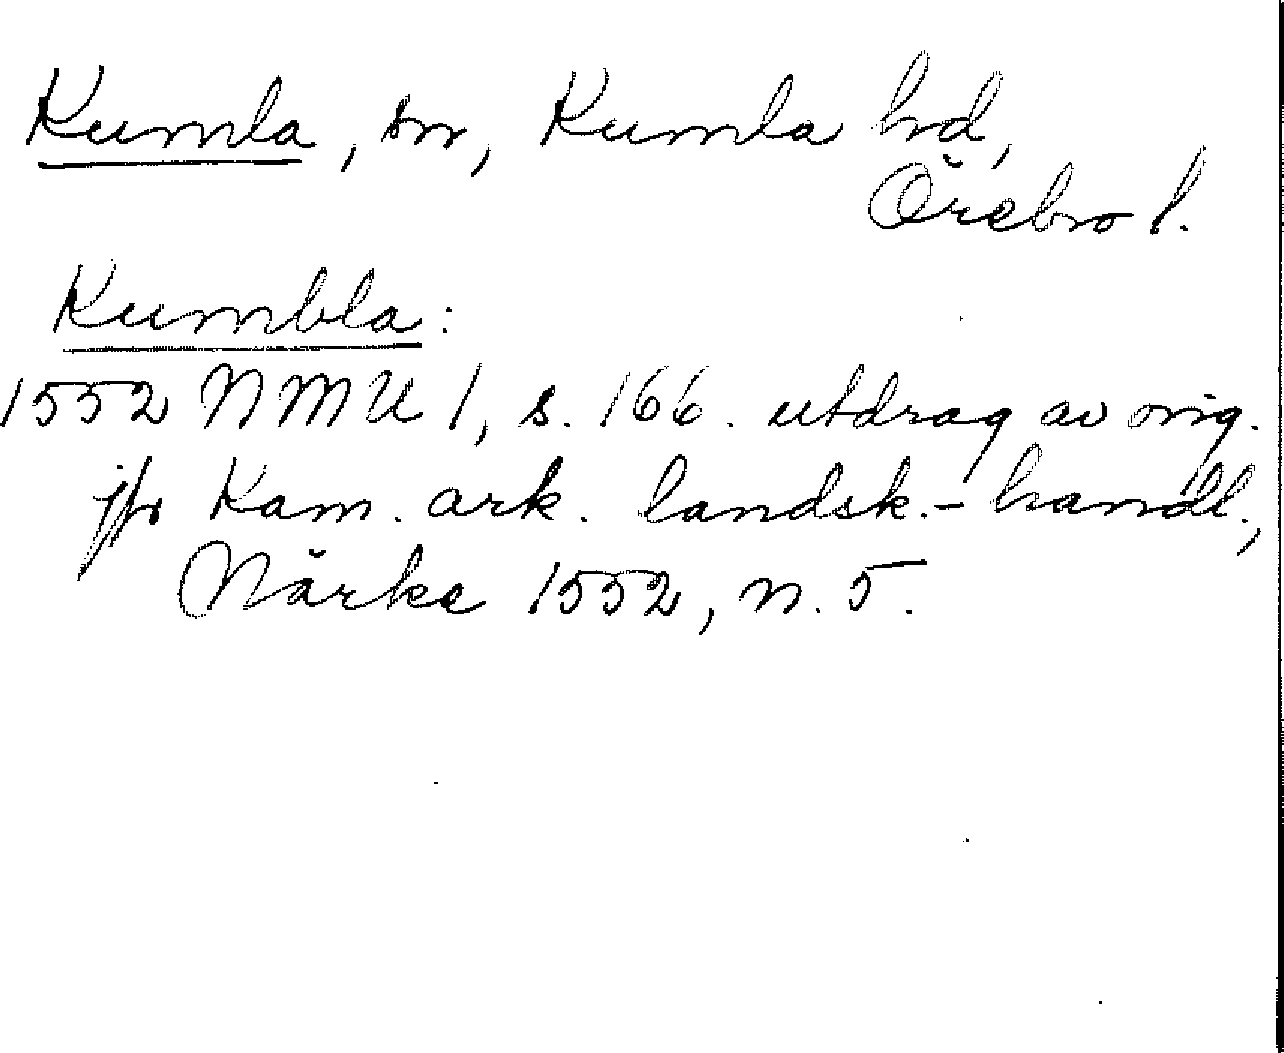 Kumla, sn, Kumla hd,
Örebro l.
Kumbla:
1552 NMU 1, s. 166. utdrag av orig.
jfr Kam. ark. landsk.-handl.,
Närke 1552, n. 5.